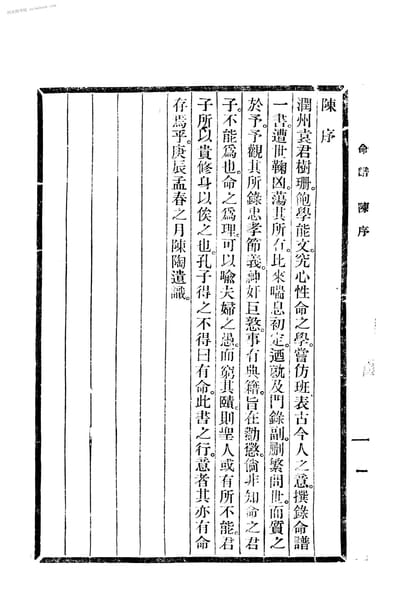 命譜 陳序
一
陳序
潤州袁君樹珊。飽學能文。究心性命之學。嘗仿班表古今人之意。撰錄命譜
一書。遭世鞠凶。蕩其所有。比來喘息初定。迺就及門錄副。刪繁問世。而質之
於予。予觀其所錄忠孝節義。神奸巨憝。事有典籍。旨在勸懲。倘非知命之君
子。不能爲也。命之爲理。可以喩夫婦之愚。而窮其賾。則聖人或有所不能。君
子所以貴修身以俟之也。孔子得之不得曰有命。此書之行。意者其亦有命
存焉乎。庚辰孟春之月陳陶遺識。